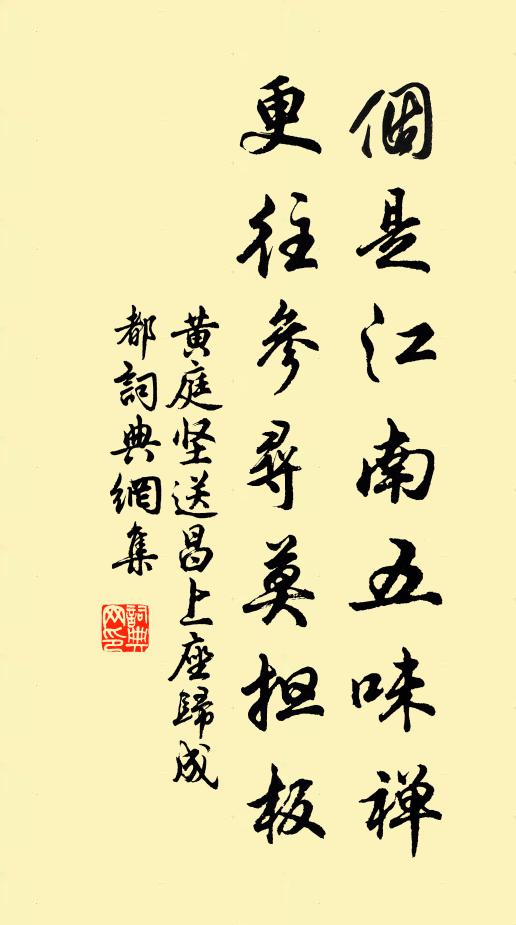 個是江南五味禅
更往參尋莫担板
黄庭坚送昌上座歸成
都詞典網集
詞典網印